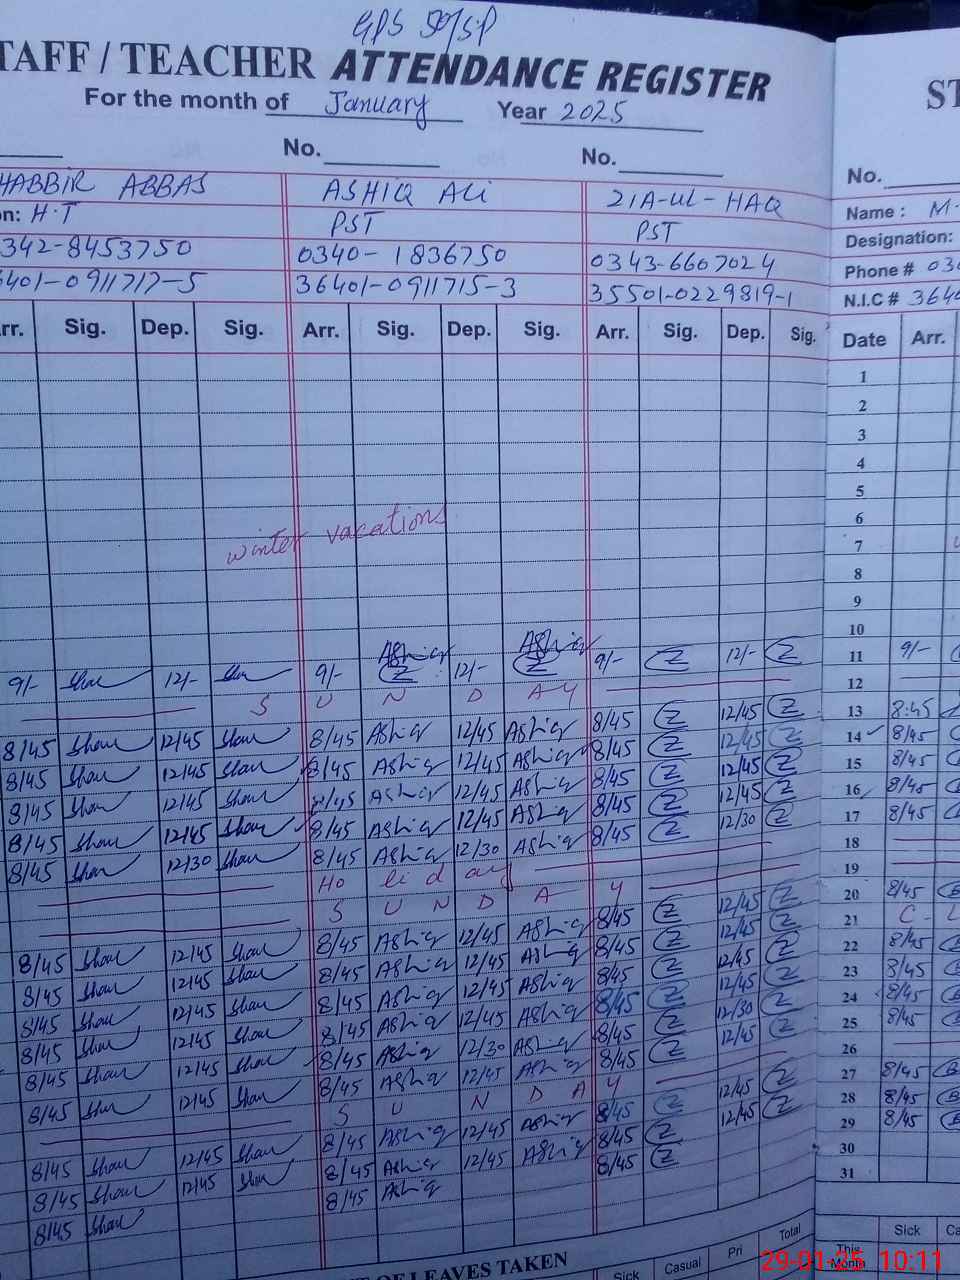 GPS 50/SP
TAFF / TEACHER ATTENDANCE REGISTER
For the month of January Year 2025
No. No.
HABBIR ABBAS ASHIQ ALi ZIA-UL-HAQ
on: H.T PST PST
342-8453750 0340-1836750 0343-6607024
6401-0911717-5 36401-0911715-3 35501-0229819-1
rr. Sig. Dep. Sig. Arr. Sig. Dep. Sig. Arr. Sig. Dep. Sig.
winter vacations
9/- Shau 12/- Shau 9/- Ashiq 12/- Ashiq 9/- Z 12/- Z
S U N D A Y
8/45 Shau 12/45 Shau 8/45 Ashiq 12/45 Ashiq 8/45 Z 12/45 Z
8/45 Shau 12/45 Shau 8/45 Ashiq 12/45 Ashiq 8/45 Z 12/45 Z
8/45 Shau 12/45 Shau 8/45 Ashiq 12/45 Ashiq 8/45 Z 12/45 Z
8/45 Shau 12/45 Shau 8/45 Ashiq 12/45 Ashiq 8/45 Z 12/45 Z
8/45 Shau 12/30 Shau 8/45 Ashiq 12/30 Ashiq 8/45 Z 12/30 Z
Holiday
S U N D A Y
8/45 Shau 12/45 Shau 8/45 Ashiq 12/45 Ashiq 8/45 Z 12/45 Z
8/45 Shau 12/45 Shau 8/45 Ashiq 12/45 Ashiq 8/45 Z 12/45 Z
8/45 Shau 12/45 Shau 8/45 Ashiq 12/45 Ashiq 8/45 Z 12/45 Z
8/45 Shau 12/45 Shau 8/45 Ashiq 12/45 Ashiq 8/45 Z 12/45 Z
8/45 Shau 12/45 Shau 8/45 Ashiq 12/30 Ashiq 8/45 Z 12/30 Z
8/45 Shau 12/45 Shau 8/45 Ashiq 12/45 Ashiq 8/45 Z 12/45 Z
S U N D A Y
8/45 Shau 12/45 Shau 8/45 Ashiq 12/45 Ashiq 8/45 Z 12/45 Z
8/45 Shau 12/45 Shau 8/45 Ashiq 12/45 Ashiq 8/45 Z 12/45 Z
8/45 Shau 8/45 Ashiq 8/45 Z
OF LEAVES TAKEN
Sick Casual Pri Total
ST
No.
Name : M.
Designation:
Phone # 030
N.I.C # 3640
Date Arr.
1
2
3
4
5
6
7
8
9
10
11 9/-
12
13 8:45
14 8/45
15 8/45
16 8/45
17 8/45
18
19
20 8/45
21 C - L
22 8/45
23 8/45
24 8/45
25 8/45
26
27 8/45
28 8/45
29 8/45
30
31
Sick Ca
This Month
29-01-25 10:11